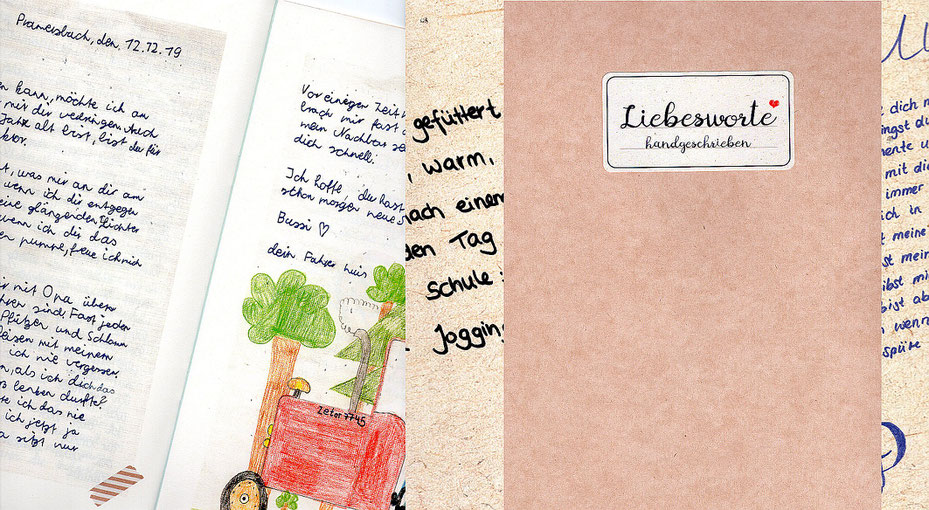 Prameisbach, den 12.12.19
en kann, möchte ich an
mir dir verbringen. Auch
Jahre alt bist, bist du für
t, was mir an dir am
wenn ich dir entgegen
eine glänzenden Lichter
wenn ich dir das
en pumpe, freue ich mich
mit Opa übers
hren sind. Fast jeden
Pfützen und Schlamm
leisen mit meinem
ich nie vergessen
n, als ich dich das
lenken durfte?
te ich das nie
ich jetzt ja
a sitzt nur
Vor einigen Zeit
brach mir fast
mein Nachbar
dich schnell.
Ich hoffe, du hast
schon morgen neue
Bussi ♡
dein Fahrer Luis
Zetor 7745
08
gefüttert
, warm,
nach einem
den Tag
schule:
Jogging
Liebesworte
handgeschrieben
dich m
ingst du
ente u
mit die
immer
ich in
t meine
st mein
ibst mi
bist ab
wenn
späte